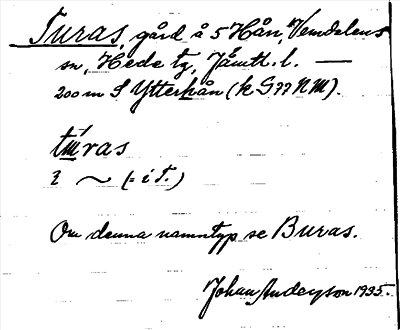 Turas, gård å 5 Hån, Vemdalens
sn, Hede tg, Jämtl. l. —
200 m S Ytterhån (k G77 NM).
tu̅́ras
i ~ (= i T.)
Om denna namntyp se Buras.
Johan Anderson 1935.